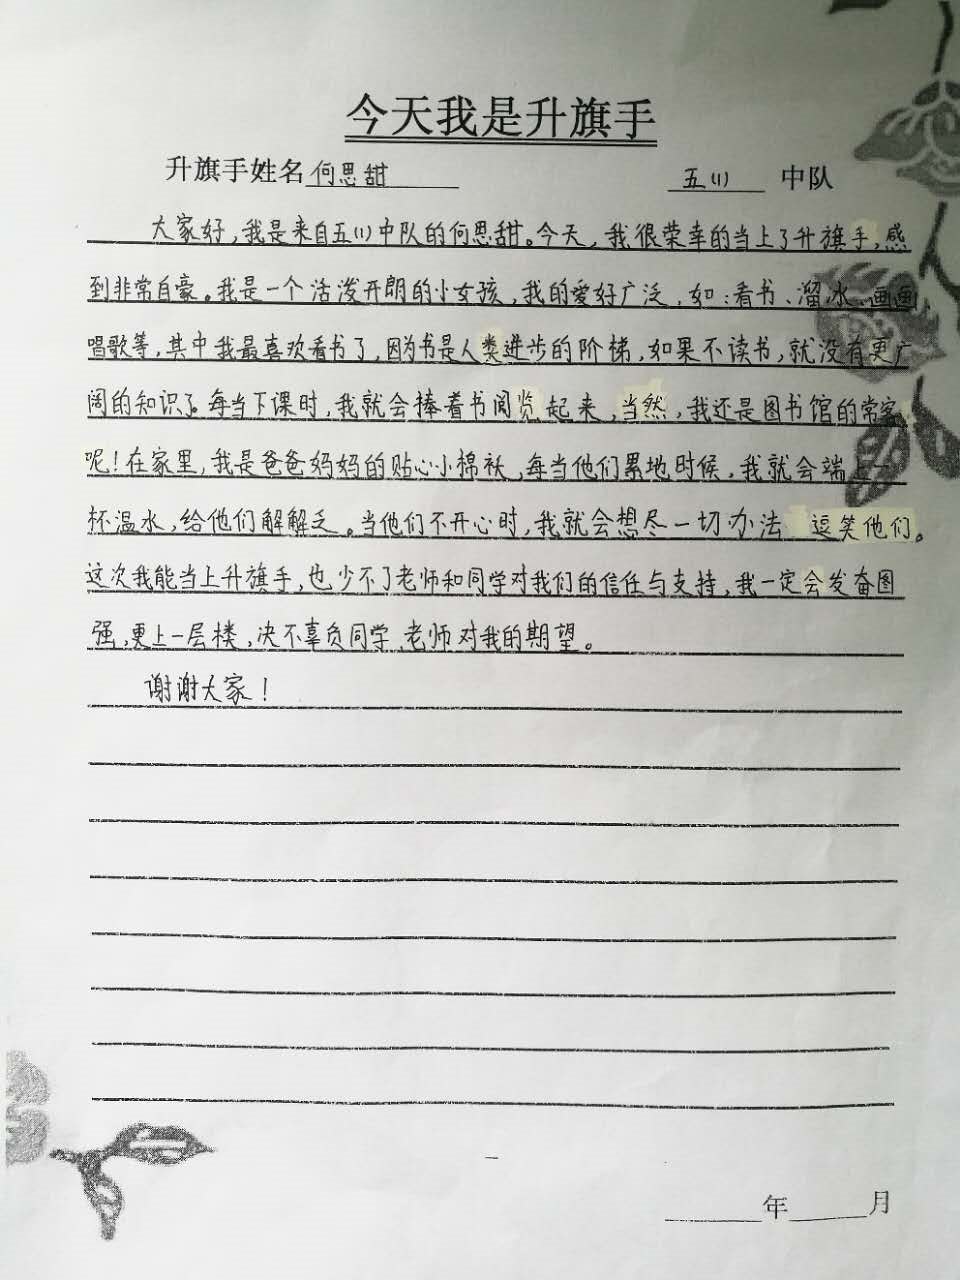 今天我是升旗手
升旗手姓名 何思甜 五(1) 中队
大家好，我是来自五(1)中队的何思甜。今天，我很荣幸的当上了升旗手，感
到非常自豪。我是一个活泼开朗的小女孩，我的爱好广泛，如：看书、溜冰、画画
唱歌等，其中我最喜欢看书了，因为书是人类进步的阶梯，如果不读书，就没有更广
阔的知识了。每当下课时，我就会捧着书阅览起来，当然，我还是图书馆的常客
呢！在家里，我是爸爸妈妈的贴心小棉袄，每当他们累地时候，我就会端上一
杯温水，给他们解解乏。当他们不开心时，我就会想尽一切办法逗笑他们。
这次我能当上升旗手，也少不了老师和同学对我们的信任与支持，我一定会发奋图
强，更上一层楼，决不辜负同学、老师对我的期望。
谢谢大家！
年 月